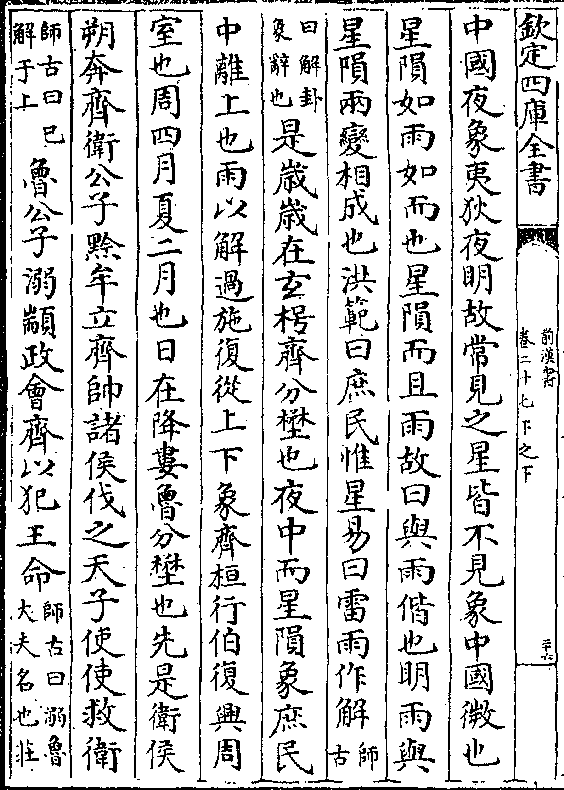 欽定四庫全書
前漢書
卷二十七下之下
二十六
中國夜象夷狄夜明故常見之星皆不見象中國微也
星隕如雨如而也星隕而且雨故曰與雨偕也明雨與
星隕兩變相成也洪範曰庶民惟星易曰雷雨作解師古
曰解卦象辭也是歲歲在玄枵齊分壄也夜中而星隕象庶民
中離上也雨以解過施復從上下象齊桓行伯復興周
室也周四月夏二月也日在降婁魯分壄也先是衛侯
朔奔齊衛公子黔牟立齊帥諸侯伐之天子使使救衛
師古曰已解于上魯公子溺顓政會齊以犯王命師古曰溺魯大夫名也莊